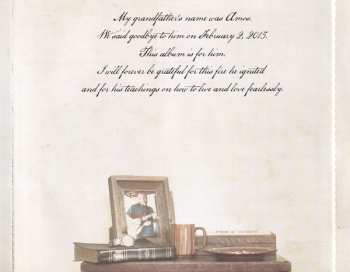 My grandfather's name was Amos.
We said goodbye to him on February 2, 2013.
This album is for him.
I will forever be grateful for this fire he ignited
and for his teachings on how to live and love fearlessly.